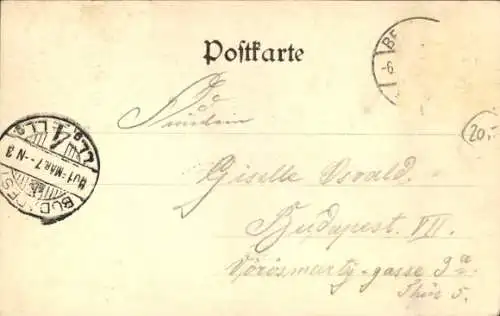 Postkarte
BE
-6
Fräulein
Giselle Oswald.
Budapest. VII.
Vörösmarty-gasse 9a
Thür 5.
BUDAPEST
901-MAR.7-N 3
20.-